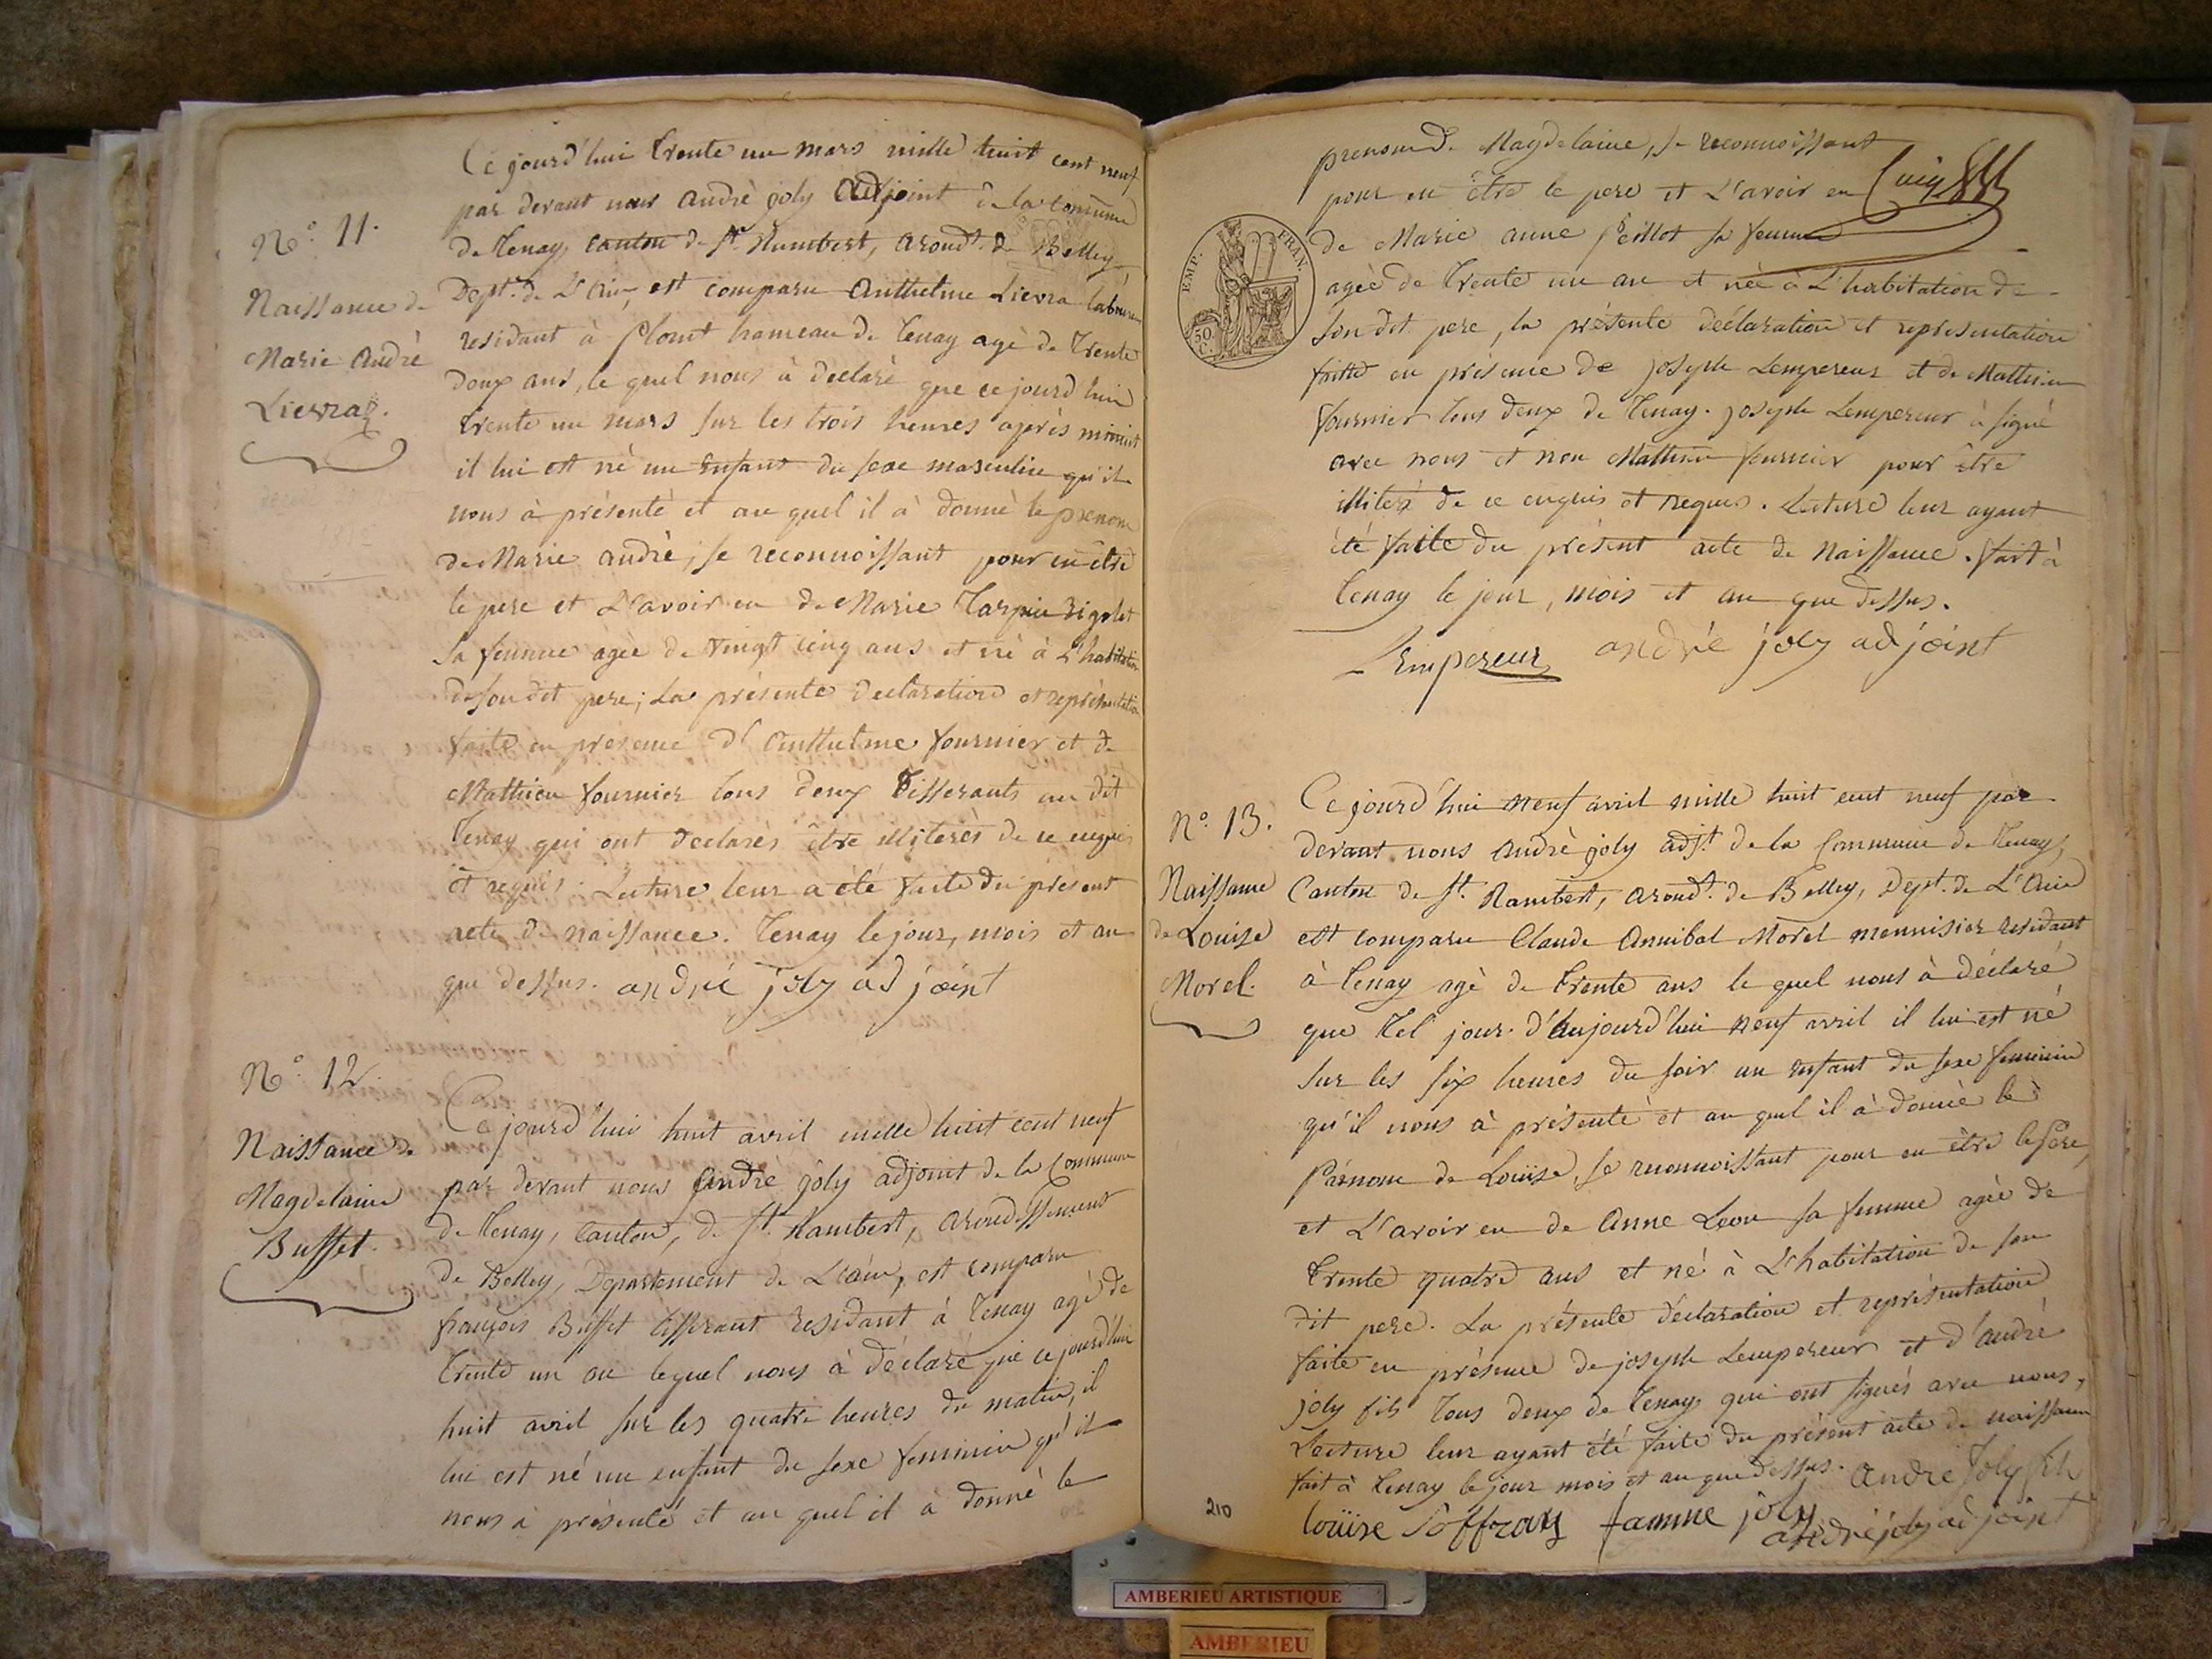 N.º 11.
Naissance de
Marie André
Lievraz.
Ce jourd'hui trente un mars mille huit cent neuf
par devant nous andré joly adjoint de la commune
de Tenay, canton de St. Rambert, arondt. de Belley,
Dept. de L'ain, est comparu Anthelme Lievra laboureur
residant à Plomt hameau de Tenay agé de trente
deux ans, le quel nous à declaré que ce jourd'hui
trente un mars sur les trois heures après minuit
il lui est né un enfant du sexe masculin qu'il
nous à présenté et au quel il à donné le prenom
de Marie andré, se reconnoissant pour en être
le pere et L'avoir eu de Marie Tarpin Rigolet
sa femme agée de vingt cinq ans et né à L'habitation
de son dit pere; La présente declaration et représentation
faite en présence d'Anthelme fournier et de
Mathieu fournier tous deux Tisserants au dit
Tenay qui ont declarés être illiterés de ce enquis
et requis. Lecture leur a été faite du présent
acte de naissance. Tenay le jour, mois et an
que dessus. andré joly adjoint
N.º 12.
Naissance de
Magdelaine
Buffet.
Ce jourd'hui huit avril mille huit cent neuf
par devant nous André joly adjoint de la Commune
de Tenay, Canton, de St. Rambert, arondissement
de Belley, Departement de L'ain, est comparu
françois Buffet tisserant residant à Tenay agé de
trente un an lequel nous à déclaré que ce jourd'hui
huit avril sur les quatre heures du matin, il
lui est né un enfant du sexe feminin qu'il
nous à présenté et au quel il à donné le
prenom de Magdelaine, se reconnoissant
pour en être le pere et L'avoir eu
de Marie anne Peillot sa femme
EMP. FRAN.
50 C.
agée de trente un an et née à L'habitation de
son dit pere, la présente déclaration et representation
faitte en présence de joseph Lempereur et de Mathieu
fournier tous deux de Tenay. joseph Lempereur à signé
avec nous et non Mathieu fournier pour être
illiteré de ce enquis et requis. Lecture leur ayant
été faite du présent acte de Naissance. fait à
Tenay le jour, mois et an que dessus.
L'Empereur andré joly adjoint
N.º 13.
Naissance
de Louise
Morel.
Ce jourd'hui neuf avril mille huit cent neuf par
devant nous André joly adjt. de la Commune de Tenay,
Canton de St. Rambert, arondt. de Belley, Dept. de L'Ain
est comparu Claude Annibal Morel menuisier residant
à Tenay agé de trente ans le quel nous à déclaré
que Tel jour d'aujourd'hui neuf avril il lui est né
sur les six heures du soir un enfant du sexe feminin
qu'il nous à présenté et au quel il à donné le
Pérnom de Louise, se reconnoissant pour en être le Pere,
et L'avoir eu de Anne Leon sa femme agée de
trente quatre ans et né à L'habitation de son
dit pere. La présente déclaration et représentation
faite en présence de joseph Lempereur et d'andré
joly fils tous deux de Tenay qui ont signés avec nous,
Lecture leur ayant été faite du présent acte de naissance
fait à Tenay le jour mois et an que dessus. André Joly fils
louise Soffray famme joly
andré joly adjoint
210
AMBERIEU ARTISTIQUE
AMBERIEU